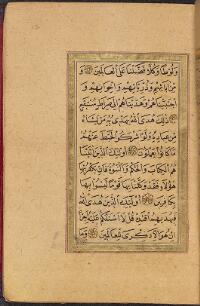 وَلُوطًا وَكُلًّا فَضَّلْنَا عَلَى الْعَالَمِينَ وَ
مِنْ آبَائِهِمْ وَذُرِّيَّاتِهِمْ وَإِخْوَانِهِمْ وَ
اجْتَبَيْنَاهُمْ وَهَدَيْنَاهُمْ إِلَى صِرَاطٍ مُسْتَقِيمٍ
ذَلِكَ هُدَى اللَّهِ يَهْدِي بِهِ مَنْ يَشَاءُ
مِنْ عِبَادِهِ وَلَوْ أَشْرَكُوا لَحَبِطَ عَنْهُمْ
مَا كَانُوا يَعْمَلُونَ أُولَئِكَ الَّذِينَ آتَيْنَا
هُمُ الْكِتَابَ وَالْحُكْمَ وَالنُّبُوَّةَ فَإِنْ يَكْفُرْ بِهَا
هَؤُلَاءِ فَقَدْ وَكَّلْنَا بِهَا قَوْمًا لَيْسُوا بِهَا
بِكَافِرِينَ أُولَئِكَ الَّذِينَ هَدَى اللَّهُ
فَبِهُدَاهُمُ اقْتَدِهْ قُلْ لَا أَسْأَلُكُمْ عَلَيْهِ أَجْرًا
إِنْ هُوَ إِلَّا ذِكْرَى لِلْعَالَمِينَ وَمَا